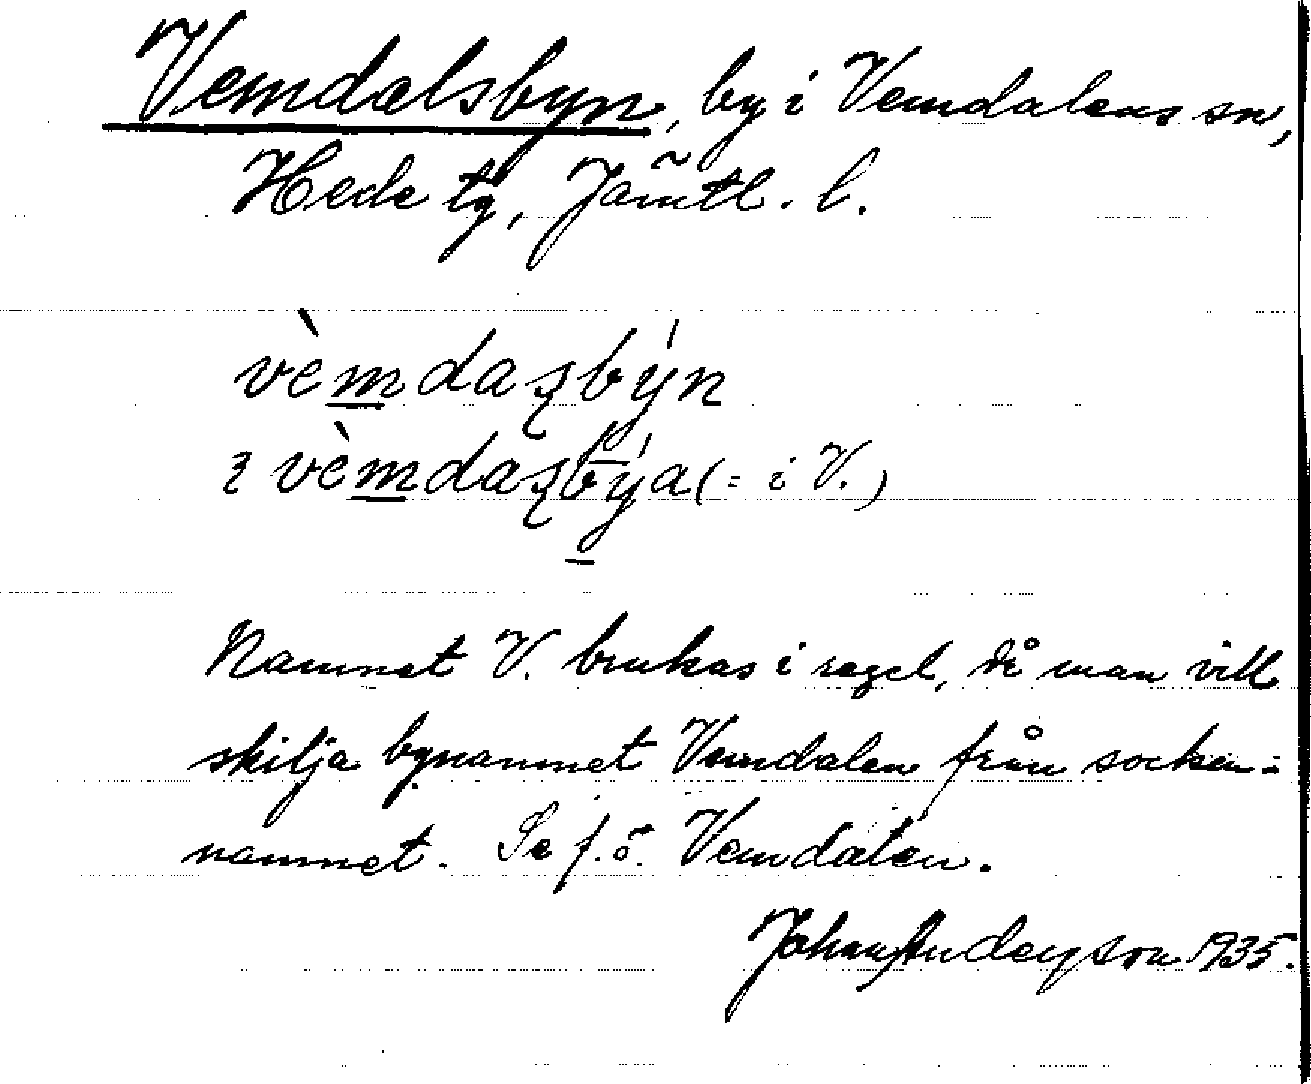 Vemdalsbyn, by i Vemdalens sn,
Hede tg, Jämtl. l.
vèmdaʂbýn
ɿ vèmdaʂbýa (= i V.)
Namnet V. brukas i regel, då man vill
skilja bynamnet Vemdalen från socken-
namnet. Se f. ö. Vemdalen.
Johan Anderson 1935.